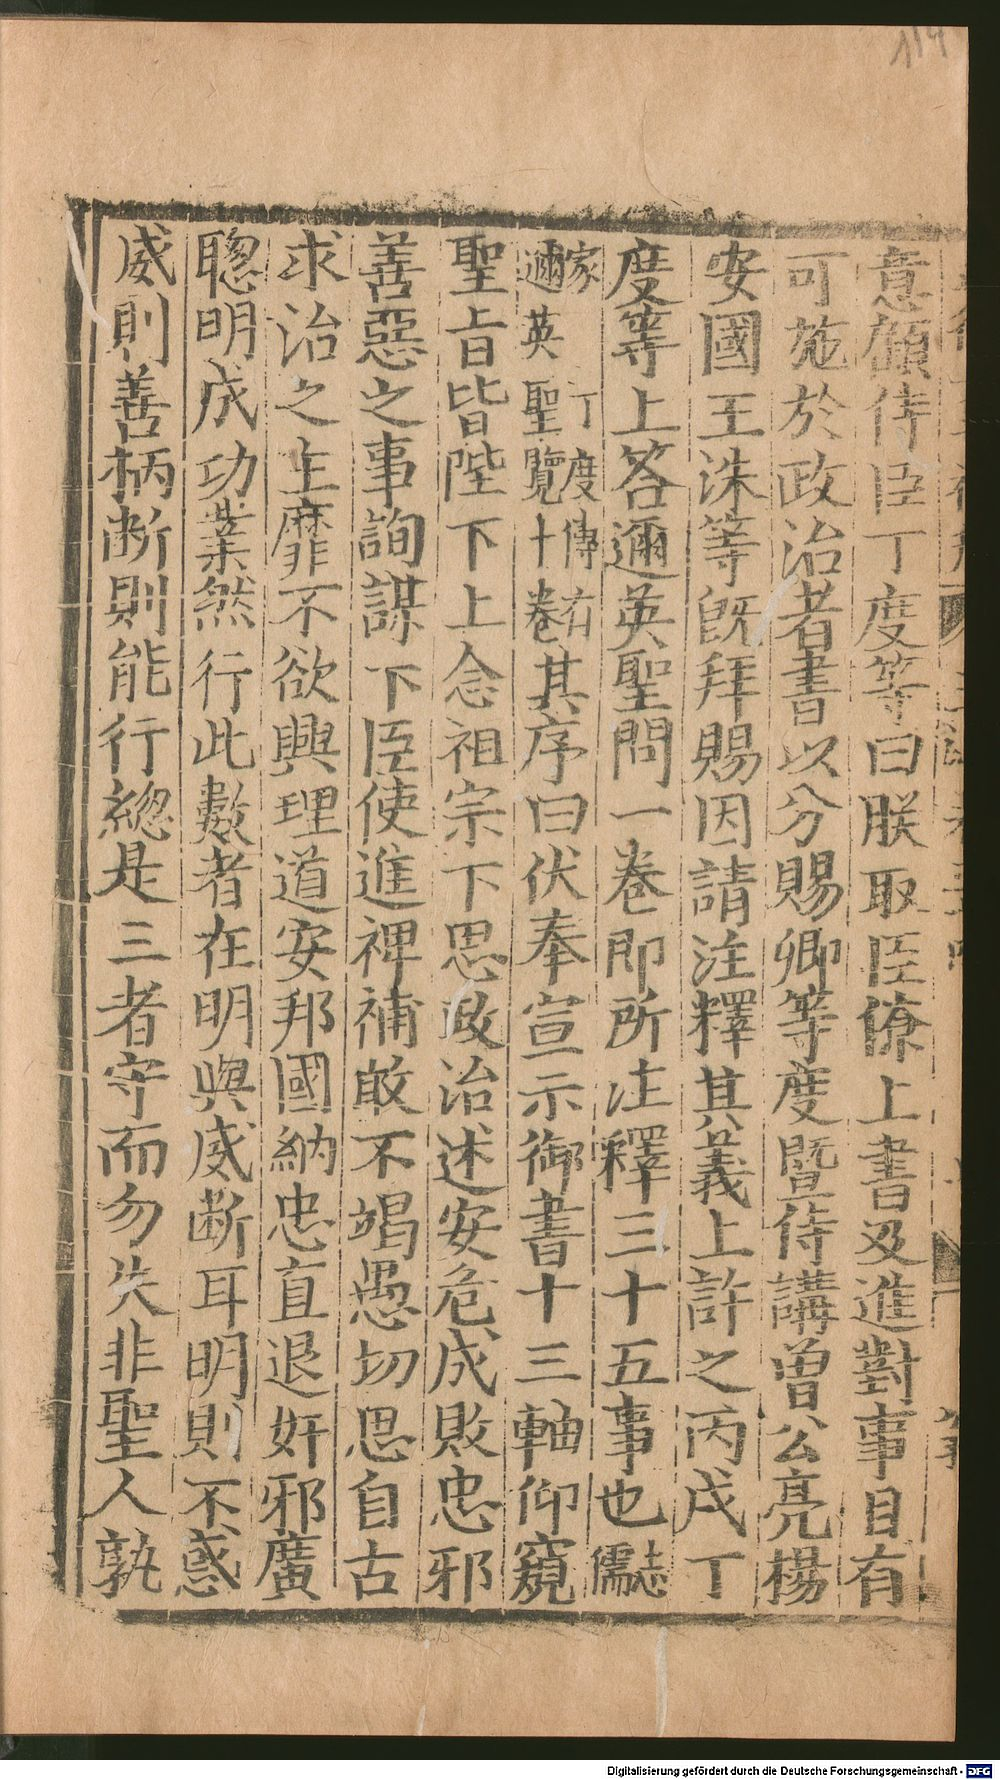 意顧侍臣丁度等曰朕取臣僚上書及進對事目有
可施於政治者書以分賜卿等度暨侍講曾公亮楊
安國王洙等既拜賜因請注釋其義上許之丙戌丁
度等上答邇英聖問一卷即所注釋三十五事也志儒
家丁度傳有邇英聖覽十卷其序曰伏奉宣示御書十三軸仰窺
聖旨皆陛下上念祖宗下思政治述安危成敗忠邪
善惡之事詢謀下臣使進裨補敢不竭愚切思自古
求治之主靡不欲興理道安邦國納忠直退奸邪廣
聰明成功業然行此數者在明與威断耳明則不惑
威則善柄断則能行總是三者守而勿失非聖人孰
114
Digitalisierung gefördert durch die Deutsche Forschungsgemeinschaft - DFG